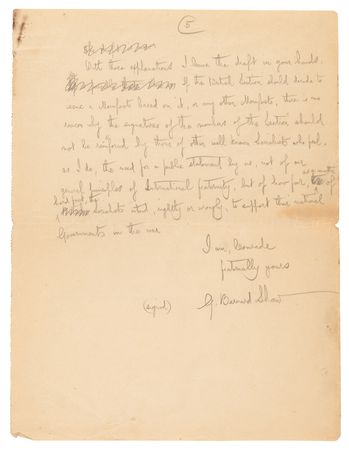 5
With these explanations I leave the draft in your hands.
If the British Section should decide to
issue a Manifesto based on it, or any other Manifesto, there is no
reason why the signatures of the members of the Section should
not be reinforced by those of other well known Socialists who feel,
as I do, the need for a public statement by us, not of our
general principles of International fraternity, but of how far, as a matter of
hard fact, the
Socialists intend, rightly or wrongly, to support their national
Governments in the war.
I am, Comrade
fraternally yours
(signed) G. Bernard Shaw